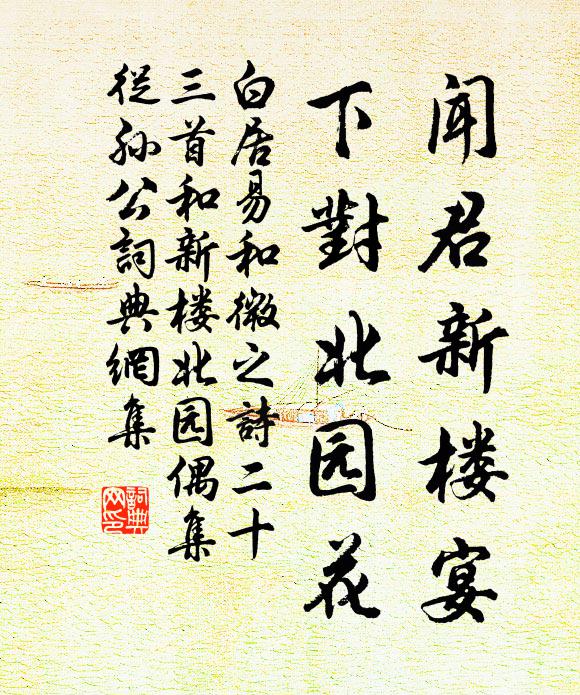 闻君新楼宴
下對北园花
白居易和微之詩二十
三首和新楼北园偶集
從孙公詞典網集
詞典网印